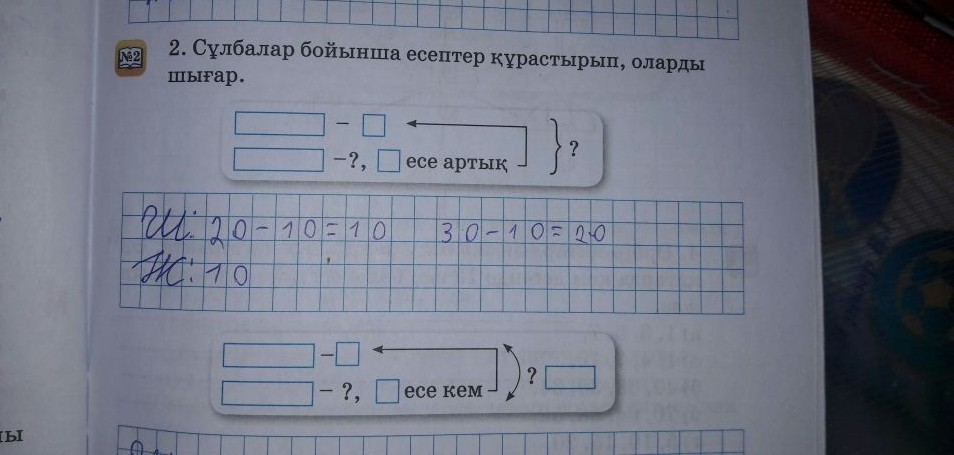 №2
2. Сұлбалар бойынша есептер құрастырып, оларды
шығар.
–
–?, есе артық
?
Ш: 20-10=10 30-10=20
Ж: 10
–
– ?, есе кем
?
ы